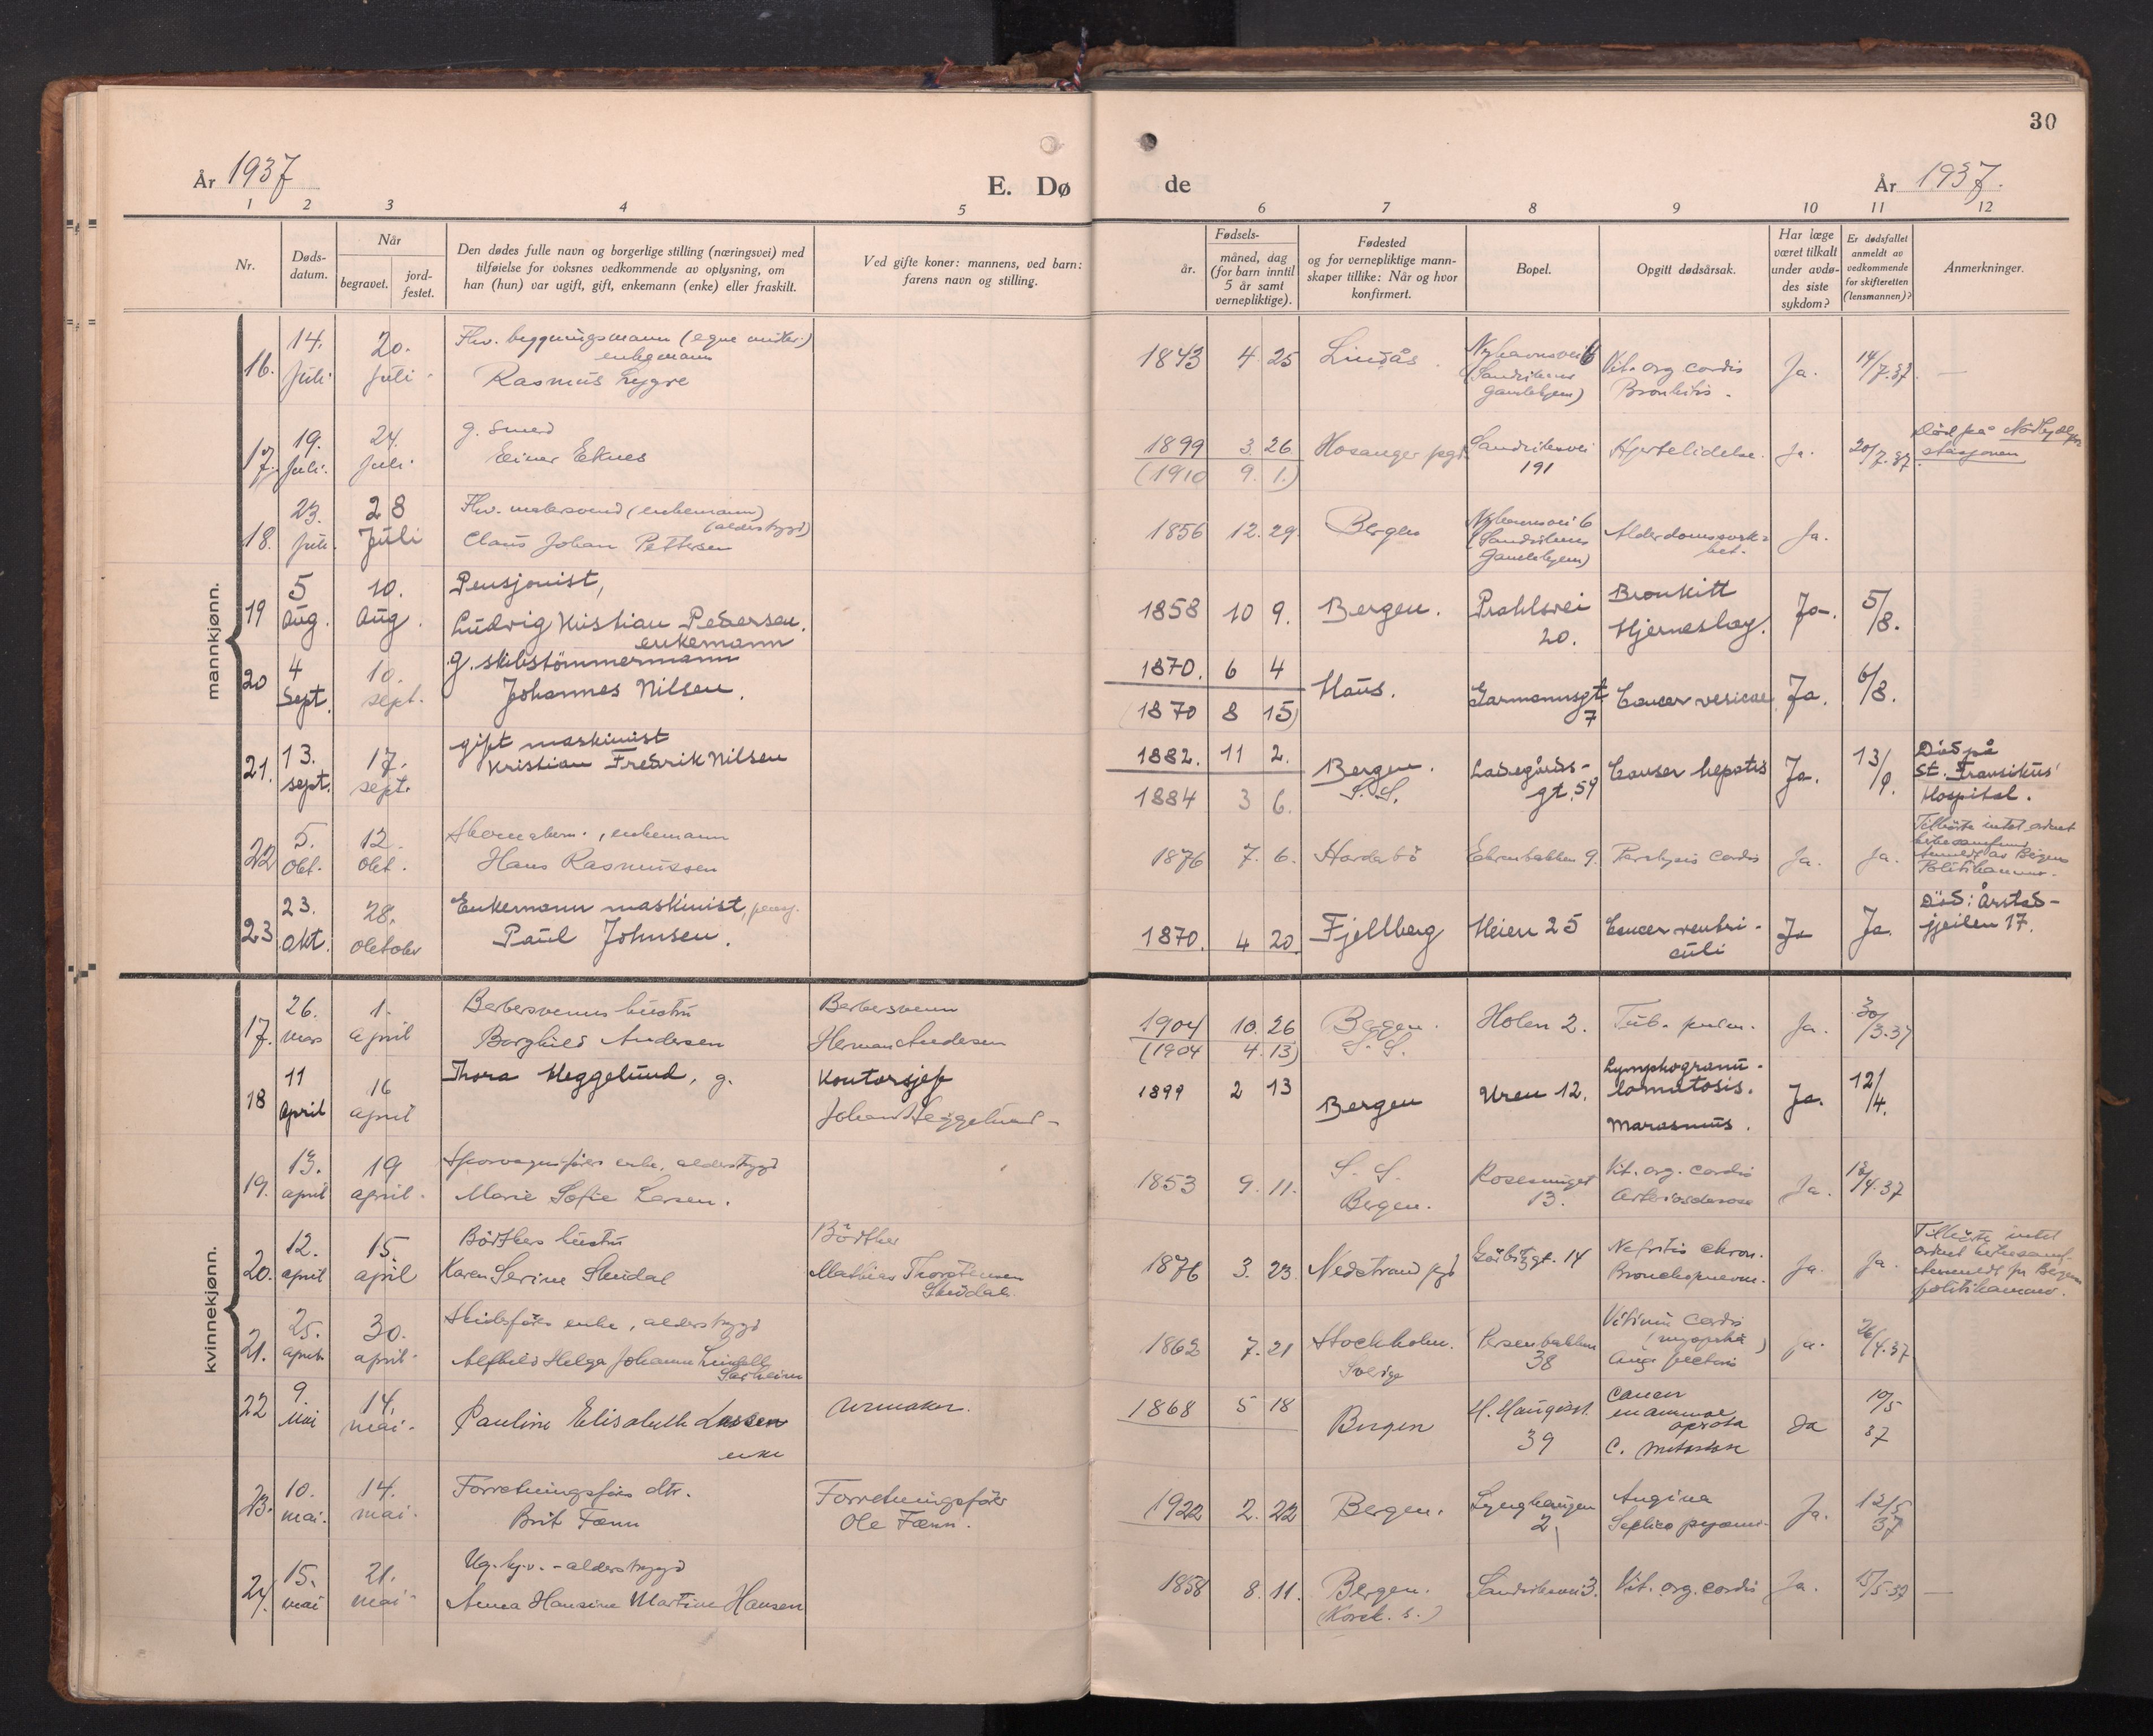 30
År 1937
E. Dø de
År 1937.
1 2 3 4 5 6 7 8 9 10 11 12
Nr.
Døds-
datum.
Når
begravet.
jord-
festet.
Den dødes fulle navn og borgerlige stilling (næringsvei) med
tilføielse for voksnes vedkommende av oplysning, om
han (hun) var ugift, gift, enkemann (enke) eller fraskilt.
Ved gifte koner: mannens, ved barn:
farens navn og stilling.
Fødsels-
år.
måned, dag
(for barn inntil
5 år samt
vernepliktige).
Fødested
og for vernepliktige mann-
skaper tillike: Når og hvor
konfirmert.
Bopel.
Opgitt dødsårsak.
Har læge
været tilkalt
under avdø-
des siste
sykdom?
Er dødsfallet
anmeldt av
vedkommende
for skifteretten
(lensmannen)?
Anmerkninger.
mannkjønn.
16. 14. juli 20. juli
Fhv. bygningsmann (egne midler)
enkemann
Rasmus Lygre
1843 4. 25 Lindås Nyhavnsvei 6
(Sandvikens
Gamlehjem)
Vit. org. cordis
Bronkitis.
Ja. 14/7.37 —
17. 19. juli. 24. juli
g. smed
Einer Eknes
1899 3. 26
(1910 9. 1.)
Hosanger pgd. Sandviksvei
191
Hjertelidelse. Ja. 20/7.37.
Död på
stasjonen
18. 23. juli. 28 Juli
Fhv. malersvend (enkemann)
(alderstrygd)
Claus Johan Pettersen
1856 12. 29. Bergen Nyhavnsvei 6
(Sandvikens
Gamlehjem)
Alderdomssvak-
het.
Ja.
19 5 Aug. 10. Aug.
Pensjonist,
Ludvig Kristian Pedersen.
enkemann
1858 10 9. Bergen. Prahlsvei
20.
Bronkitt
Hjerneslag.
Ja. 5/8.
20 4 Sept. 10. sept.
g. skibstömmermann
Johannes Nilsen.
1870. 6 4
(1870 8 15)
Haus. Garmannsgt.
7
Cancer vesicae Ja. 6/8.
21. 13. sept. 17. sept.
gift maskinist
Kristian Fredrik Nilsen
1882. 11 2.
1884 3 6.
Bergen.
S. S.
Ladegårds-
gt. 59
Canser hepatis Ja. 13/9.
Död på
St. Fransikus'
Hospital.
22 5. Okt. 12. okt.
enkemann
Hans Rasmussen
1876 7. 6. Hordabö 9. Paralysis cordis Ja. Ja.
Tilhörte intet ordnet
kirkesamfunn
Anmeldt av Bergens
Politikammer.
23 23. okt. 28. oktober
Enkemann maskinist, pensj.
Paul Johnsen.
1870. 4 20. Fjellberg Heien 25 Cancer ventri-
culi
Ja Ja.
Död: Årstad-
gjeilen 17.
kvinnekjønn.
17. 26. mars 1. april
Barbersvenns hustru
Borghild Andersen
Barbersvenn
Herman Andersen
1904 10. 26
(1904 4. 13)
Bergen.
S. S.
Holen 2. Tub. pulm. Ja. 30/3.37
18 11 April 16 april
Thora Heggelund, g.
Kontorsjef
Johan Heggelund
1899 2 13 Bergen Uren 12.
Lymphogranu-
lomatosis.
Marasmus.
Ja. 12/4.
19. 13. april 19 april.
Sporvognsförers enke, alderstrygd
Marie Sofie Larsen.
1853 9. 11. S. S.
Bergen.
Rosesmuget
13.
Vit. org. cordis
Arteriosclerose
Ja. /4.37
20. 12. april 15. april
Bödkers hustru
Karen Serine Skudal
Bödker
Mathias Thorstensen
Skudal.
1876 3. 23. Nedstrand pgd gt. 14
Nefritis chron.
Bronchopneum.
Ja. Ja.
Tilhörte intet
ordnet kirkesamf.
Anmeldt fr Bergens
politikammer.
21. 25. april 30. april.
enke, alderstrygd
Alfhild Helga Johanne Lindell
1862 7. 21 Stockholm.
Sverige
Persenbakken
38
Vitium Cordis
Ang. pectoris
ja. 26/4.37
22 9. Mai 14. mai.
Pauline Elisabeth Lassen
enke
Urmaker.
1868 5 18 Bergen H. Haugesgt.
39
Cancer
mammae
operata
C. metastase
Ja 10/5
37
23. 10. mai. 14. mai.
Forretningsförers dtr.
Brit Fænn
Forretningsförer
Ole Fænn.
1922 2. 22 Bergen. Lynghaugen
2.
Angina
Septico pyæmi.
Ja. 12/5
37
24. 15. mai 21. mai
Ug. hj.v. - alderstrygd
Anna Hansine Martine Hansen
1858 8. 11. Bergen.
(Korsk. s.)
Sandviksvei 3. Vit. org. cordis Ja. 15/5 37 —